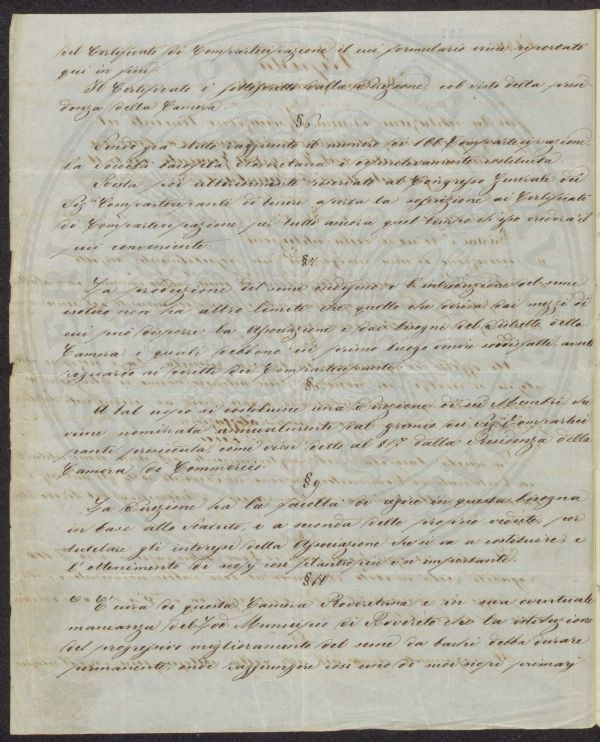 del Certificato di Compartecipazione il cui formulario viene riportato
qui in fine.
Il Certificato è sottoscritto dalla Direzione, col visto della presi-
denza della Camera.
§ 6
Essendo già stato raggiunto il numero di 100 Compartecipazioni
la Società bacofila Roveretana è definitivamente costituita.
Resta poi ulteriormente riservato al Congresso Generale dei
Sigi Compartecipanti di tenere aperta la soscrizione ai Certificati
di Compartecipazione per tutto ancora quel tempo ch'esso crederà il
più conveniente.
§ 7.
La produzione del seme indigeno e l'introduzione del seme
estero non ha altro limite che quello che deriva dai mezzi di
cui può disporre la Associazione e dai bisogni del Distretto della
Camera, i quali debbono in primo luogo venire soddisfatti, avuto
riguardo ai diritti dei Compartecipanti.
§ 8
A tal uopo si costituisce una Direzione di sei Membri che
viene nominata annualmente dal gremio dei Sigi Comparteci
panti presieduta come vien detto al § 17 dalla Presidenza della
Camera di Commercio.
§ 9
La Direzione ha la facoltà di agire in questa bisogna
in base allo Statuto, e a seconda delle proprie vedute, per
tutelare gli interessi della Associazione che si va a costituire, e
l'ottenimento di scopi così filantropici e sì importanti.
§ 10
È cura di questa Camera Roveretana e in sua eventuale
mancanza del Municipio di Rovereto che la istituzione
del progressivo miglioramento del seme da bachi debba durare
permanente, onde raggiungere così uno de' suoi scopi primarj